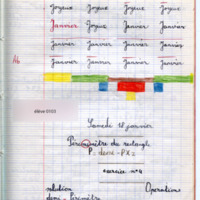 Joyeux Joyeux Joyeux Joyeux
Janvier Janvier Janvier Janvier
Janvier Janvier Janvier Janvier
Ab Janvier Janvier Janvier Janvier
élève 0103
Samedi 18 janvier
Périmètre du rectangle
P: demi-P x 2
exercice n°4
relation Operation
demi-Périmètre